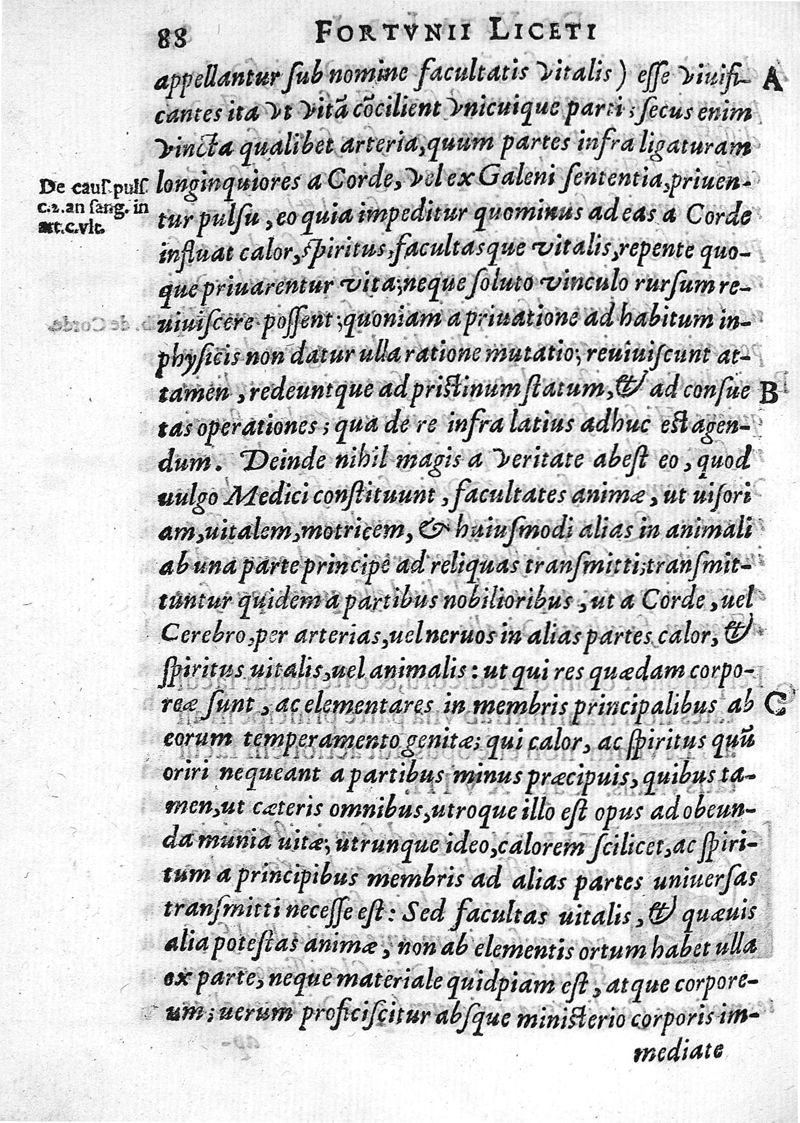 88 FORTVNII LICETI
appellantur ſub nomine facultatis vitalis) eſſe viuifi- A
cantes ita vt vitā cōcilient vnicuique parti; ſecus enim
vincta qualibet arteria, quum partes infra ligaturam
De cauſ. pulſ. longinquiores a Corde, vel ex Galeni ſententia, priuen-
c.2. an ſang. in tur pulſu, eo quia impeditur quominus ad eas a Corde
art. c. vlt. influat calor, ſpiritus, facultasque vitalis, repente quo-
que priuarentur vita; neque ſoluto vinculo rurſum re-
uiuiſcere poſſent; quoniam a priuatione ad habitum in-
phyſicis non datur ulla ratione mutatio; reuiuiſcunt at-
tamen, redeuntque ad priſtinum ſtatum, & ad conſue B
tas operationes; qua de re infra latius adhuc eſt agen-
dum. Deinde nihil magis a veritate abeſt eo, quod
uulgo Medici conſtituunt, facultates animæ, ut uiſori
am, uitalem, motricem, & huiuſmodi alias in animali
ab una parte principe ad reliquas tranſmitti; tranſmit-
tuntur quidem a partibus nobilioribus, ut a Corde, uel
Cerebro, per arterias, uel neruos in alias partes calor, &
ſpiritus uitalis, uel animalis: ut qui res quædam corpo-
reæ ſunt, ac elementares in membris principalibus ab C
eorum temperamento genitæ; qui calor, ac ſpiritus quū
oriri nequeant a partibus minus præcipuis, quibus ta-
men, ut cæteris omnibus, utroque illo eſt opus ad obeun-
da munia uitæ; utrunque ideo, calorem ſcilicet, ac ſpiri-
tum a principibus membris ad alias partes uniuerſas
tranſmitti neceſſe eſt: Sed facultas uitalis, & quæuis
alia poteſtas animæ, non ab elementis ortum habet ulla
ex parte, neque materiale quidpiam eſt, atque corpore-
um; uerum proficiſcitur abſque miniſterio corporis im-
mediate